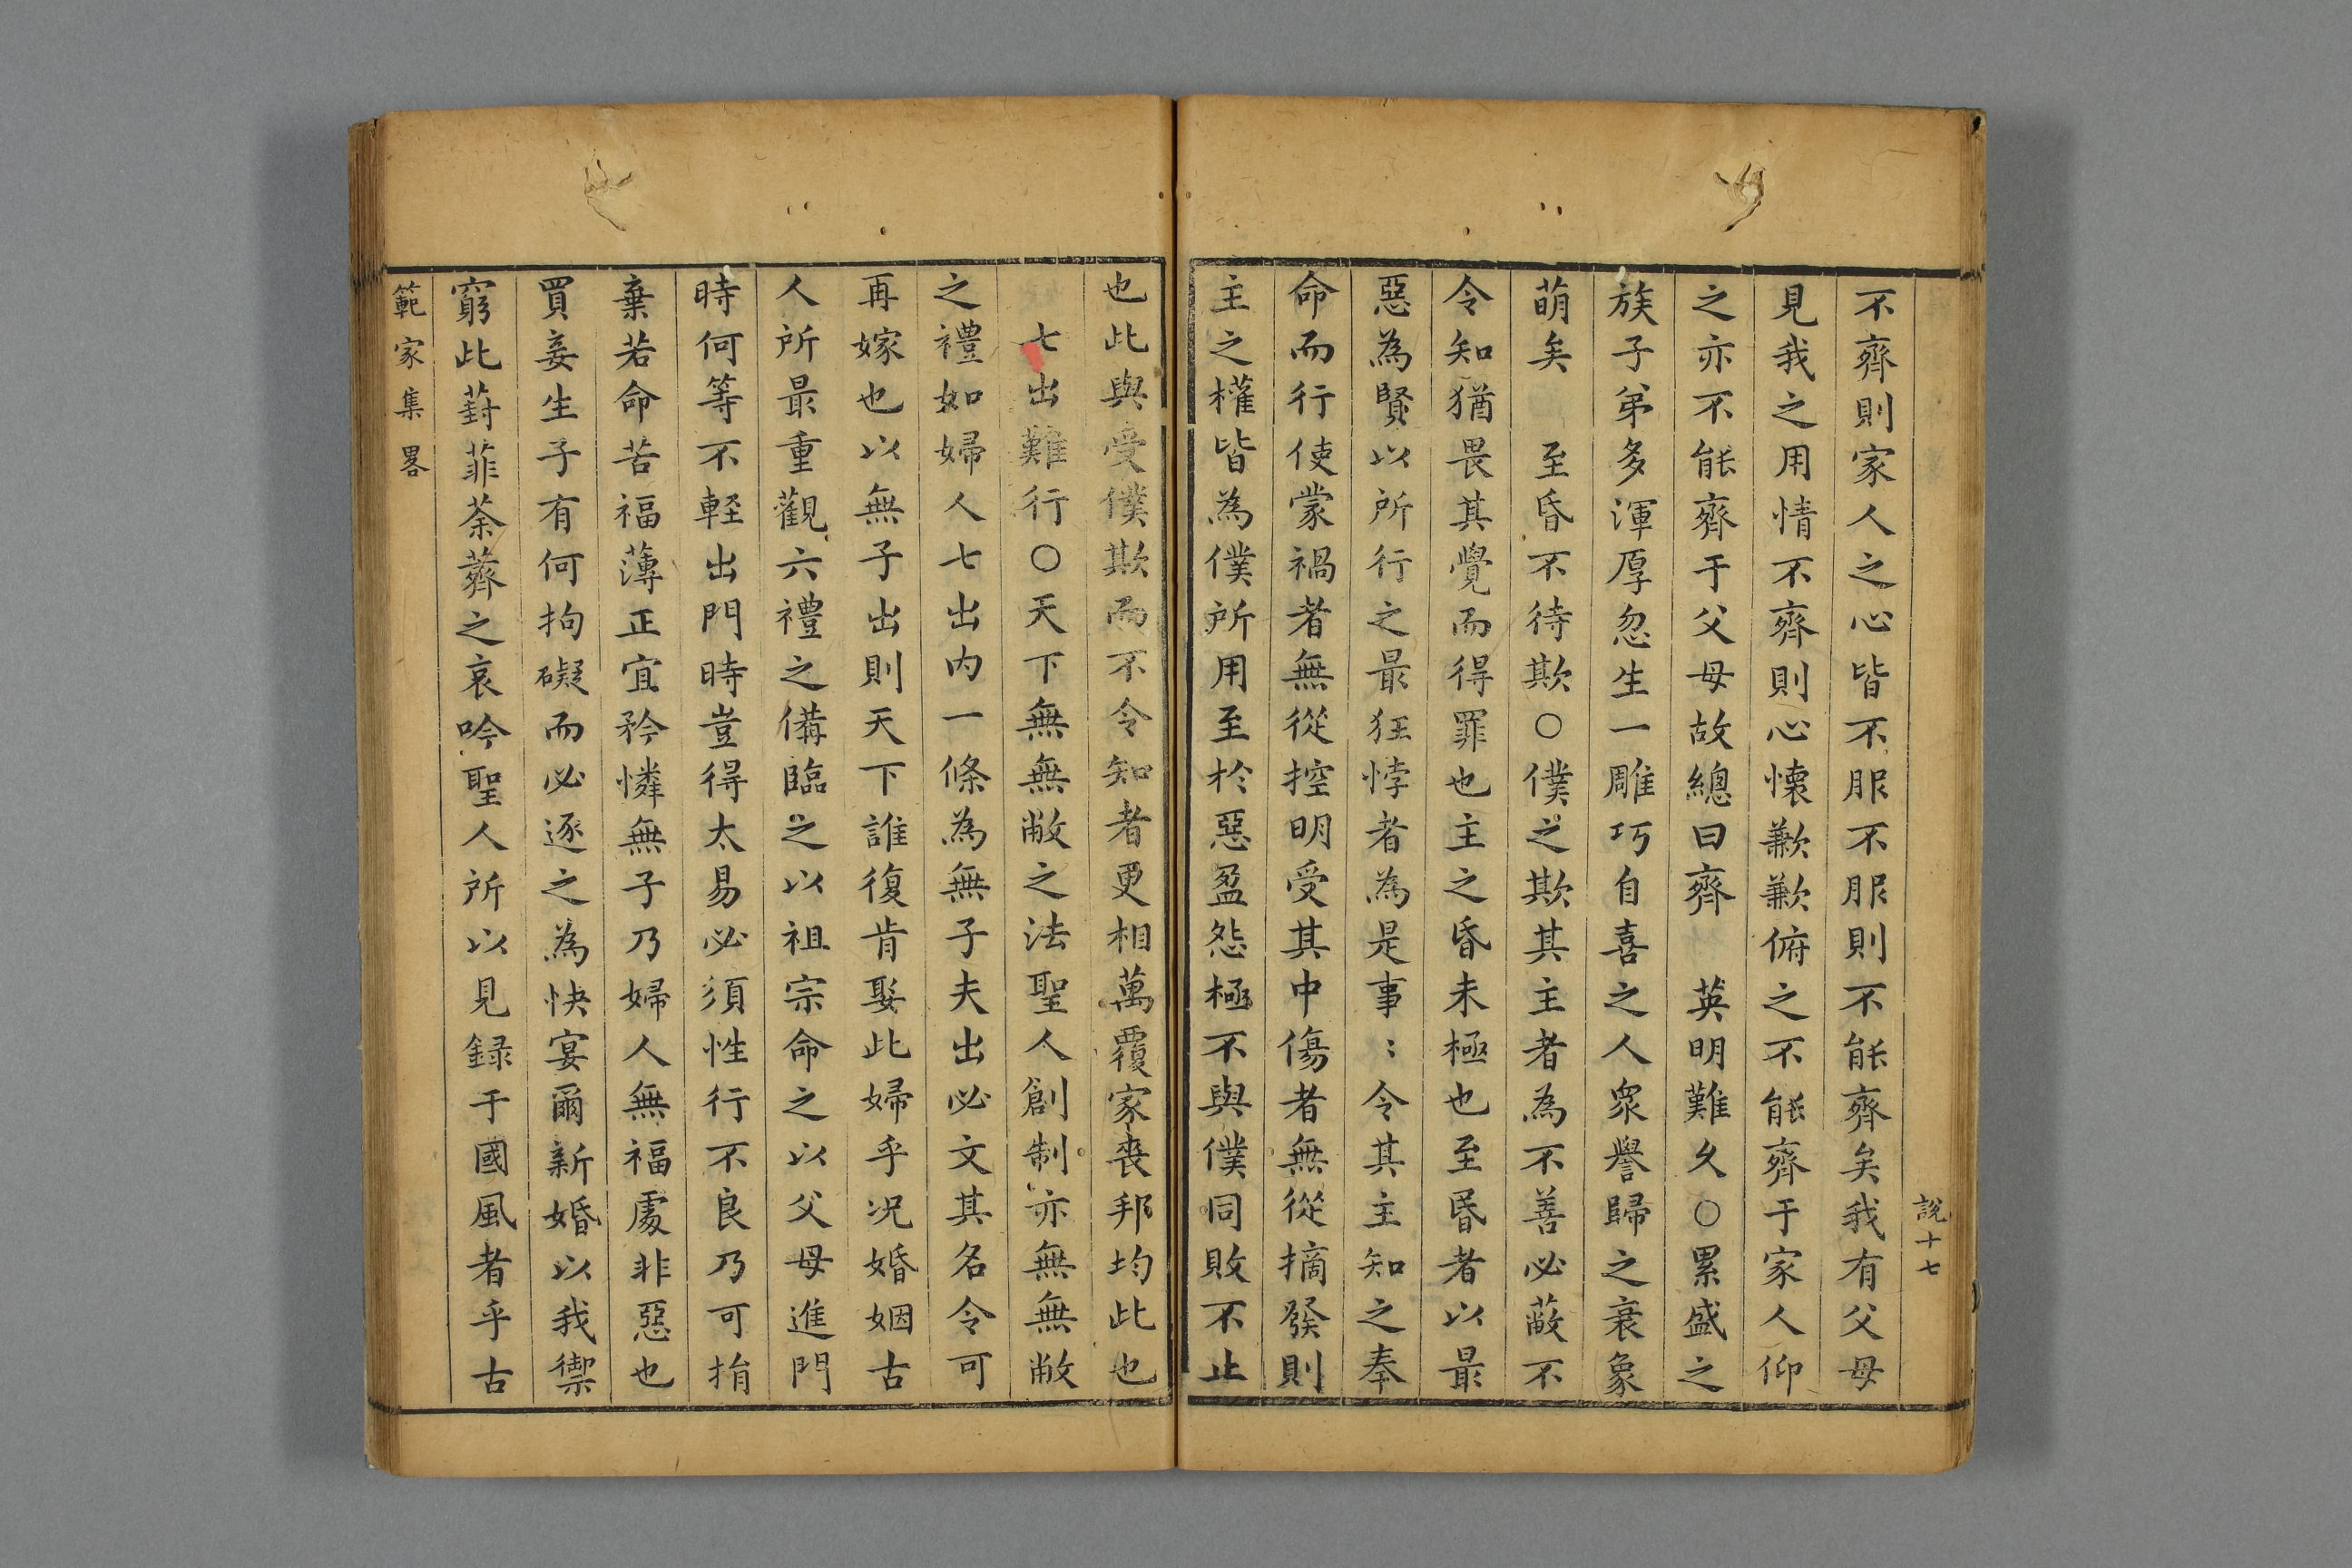 說十七
不齊則家人之心皆不服不服則不能齊矣我有父母
見我之用情不齊則心懷歉歉俯之不能齊于家人仰
之亦不能齊于父母故總曰齊　英明難久○累盛之
族子弟多渾厚忽生一雕巧自喜之人眾譽歸之衰象
萌矣　至昏不待欺○僕之欺其主者為不善必蔽不
令知猶畏其覺而得罪也主之昏未極也至昏者以最
惡為賢以所行之最狂悖者為是事：令其主知之奉
命而行使蒙禍者無從控明受其中傷者無從摘發則
主之權皆為僕所用至於惡盈怨極不與僕同敗不止
也此與受僕欺而不令知者更相萬覆家喪邦均此也
七出難行○天下無無敝之法聖人創制亦無無敝
之禮如婦人七出內一條為無子夫出必文其名令可
再嫁也以無子出則天下誰復肯娶此婦乎况婚姻古
人所最重觀六禮之備臨之以祖宗命之以父母進門
時何等不輕出門時豈得太易必須性行不良乃可捐
棄若命苦福薄正宜矜憐無子乃婦人無福處非惡也
買妾生子有何拘礙而必逐之為快宴爾新婚以我禦
窮此葑菲荼薺之哀吟聖人所以見録于國風者乎古
範家集畧